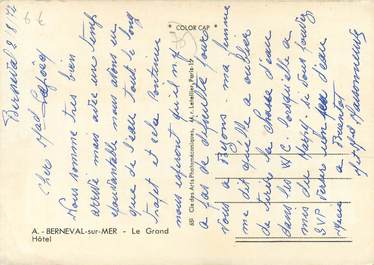 Berneval 2.8.72
Cher Mad
Nous sommes très bien
arrivé mais avec un temps
épouvantable nous avons eu
que de l'eau tout le long
trajet et cela continue
nous espérons qu'il n'y
a pas de difficulté pour
vous à Bezons. ma femme
me dit qu'elle a oublier
de tirer la chasse d'eau
dans les W.C. lorsqu'elle a
mis du Harpic. si vous pouvez
SVP tirer un peu d'eau
Merci à Bientot
* COLOR CAP *
Cie des Arts Photomécaniques, M. r. Letellier, Paris-12
A. - BERNEVAL-sur-MER - Le Grand
Hôtel
6€